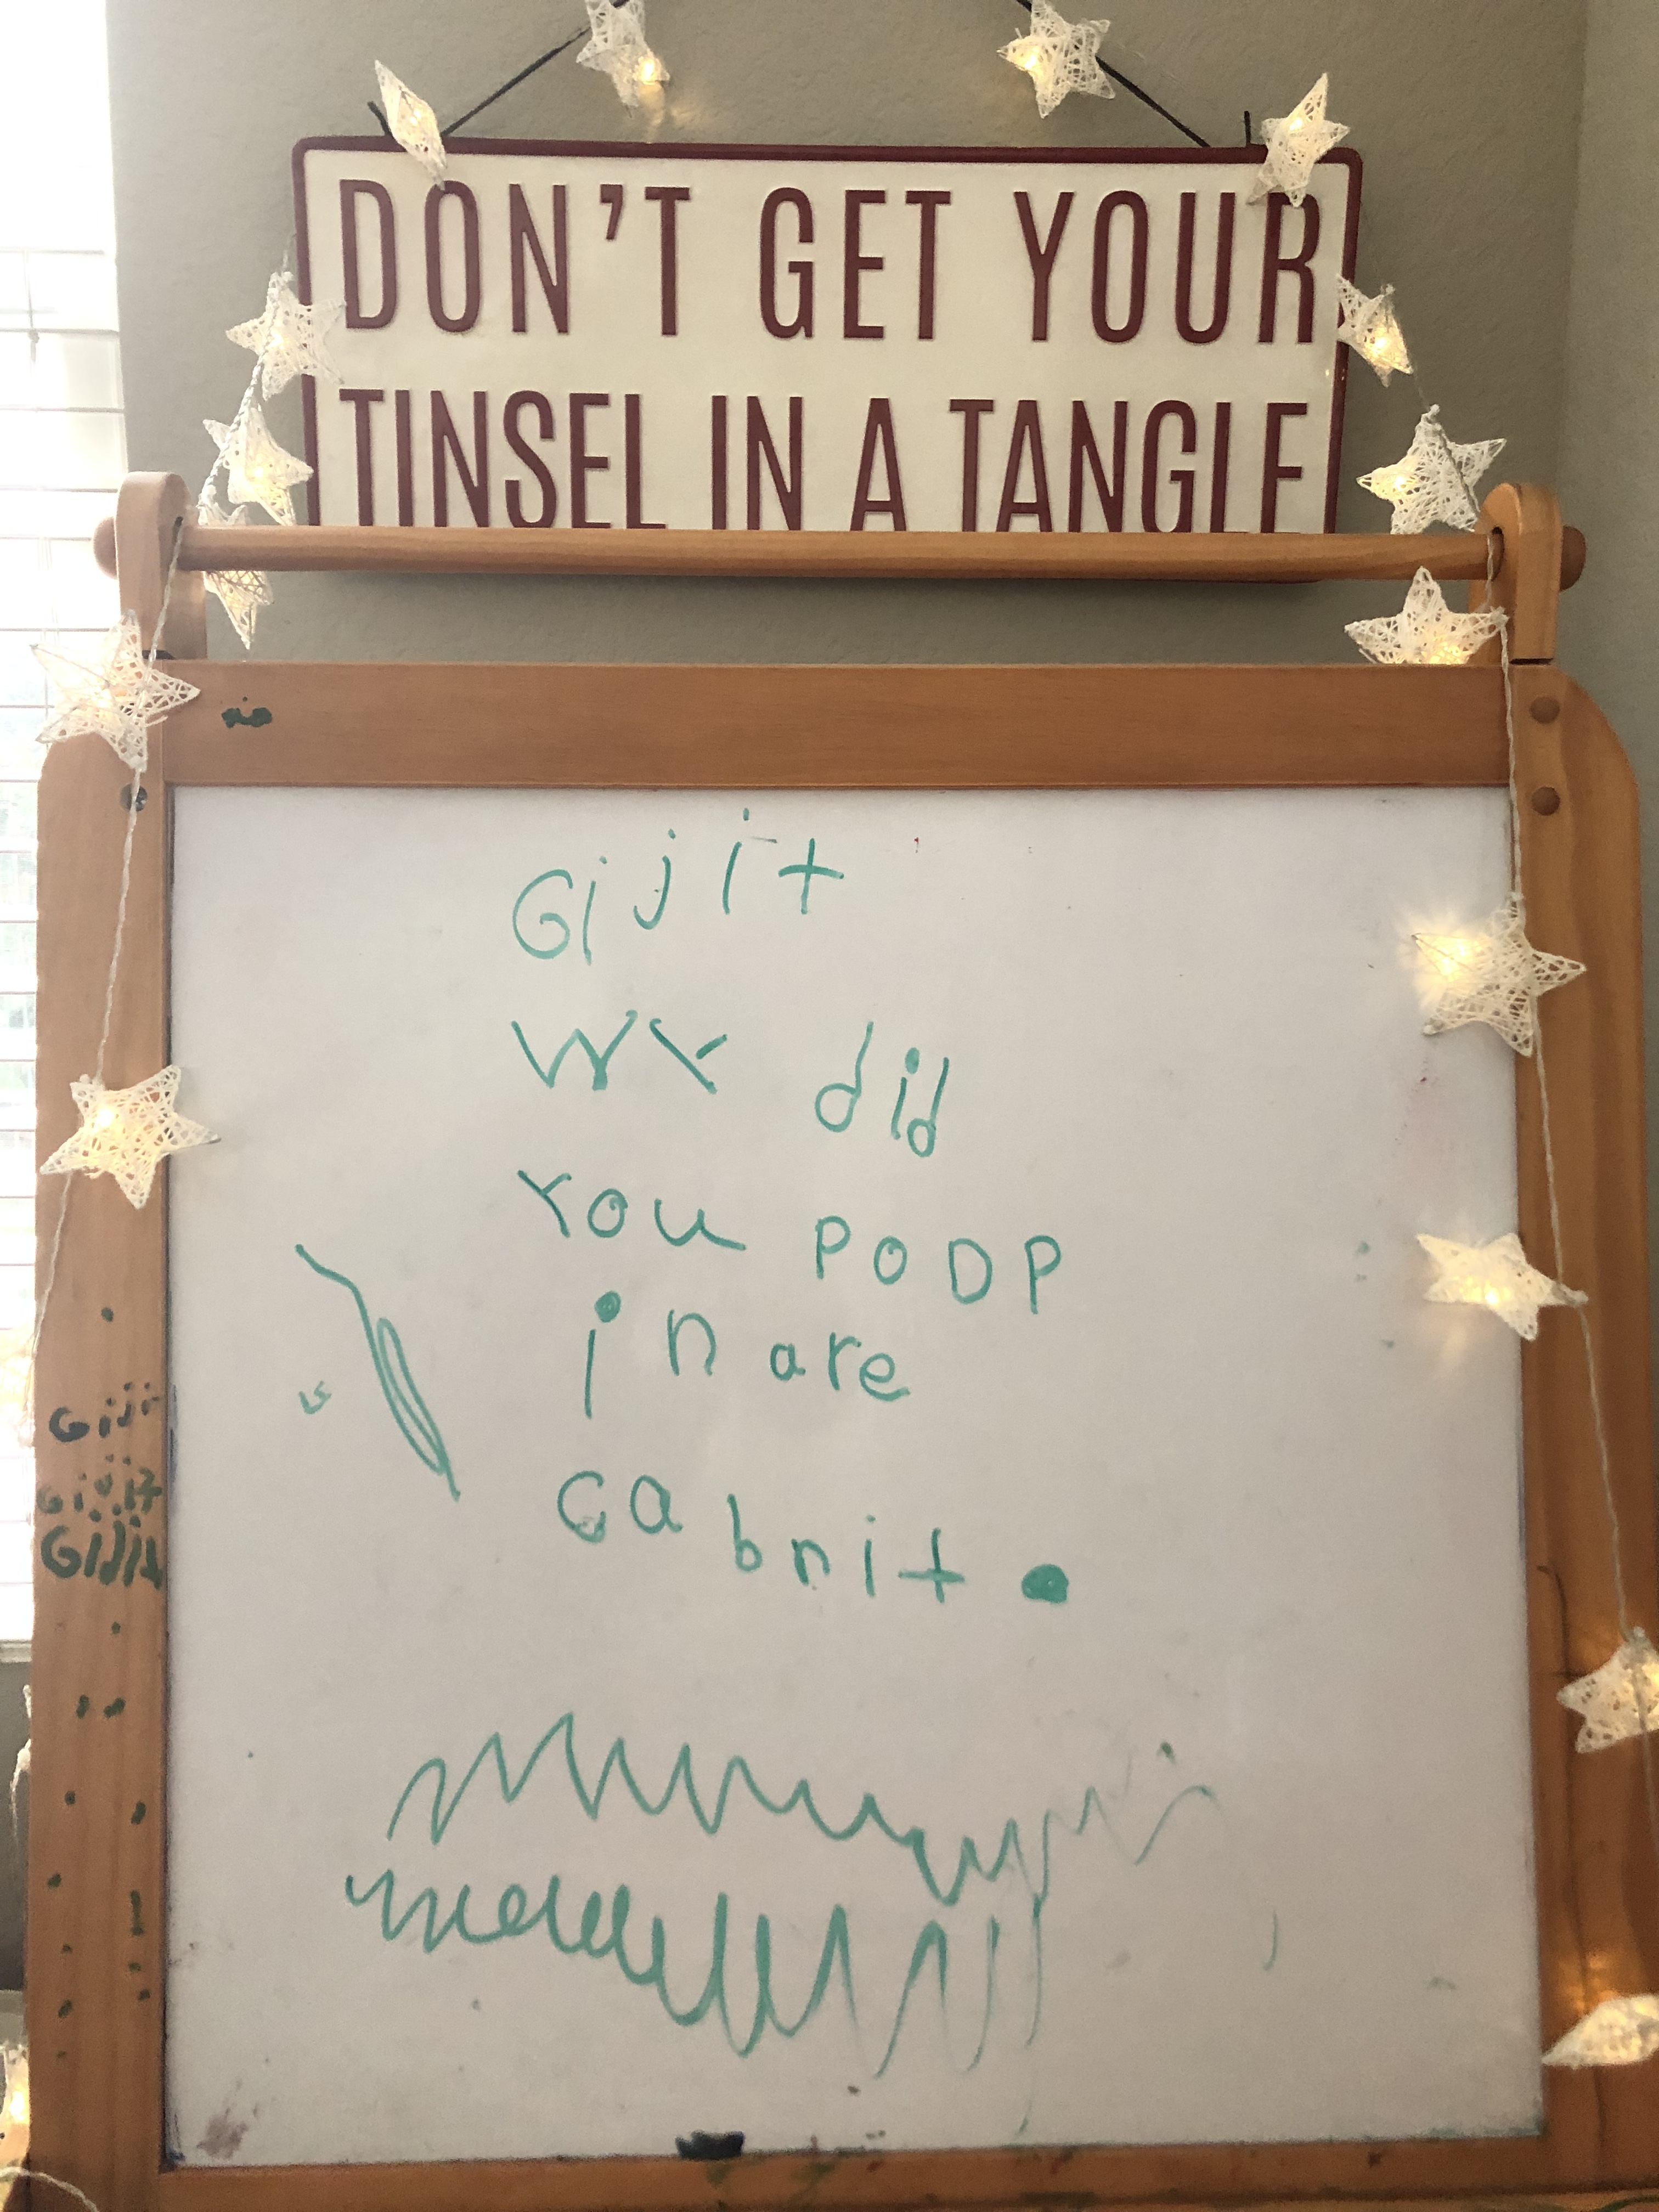 DON'T GET YOUR
TINSEL IN A TANGLE
Gijit
WY did
You POOP
in are
cabnit.
Giji
Gijit
Gijit